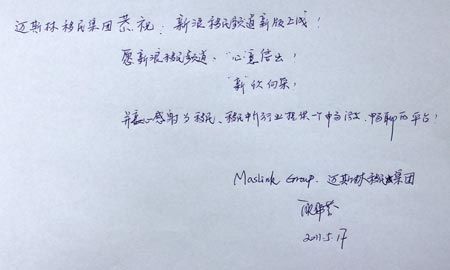 迈斯林移民集团恭祝：新浪移民频道新版上线！
愿新浪移民频道、"心"意倍出！
"新"欣向荣！
并衷心感谢为移民、移民中介行业提供一个申房 畅聊的平台！
Maslink Group. 迈斯林移民集团
2011.5.17